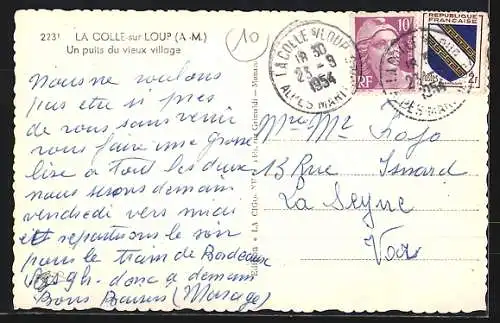 2231 LA COLLE-sur-LOUP (A.-M.)
Un puits du vieux village
10
LA COLLE S/ LOUP
18 30
23 - 9
1954
ALPES MARIT
10F
RF
REPUBLIQUE FRANÇAISE
POSTES
2f
1954
Nous ne voulons
pas être si près
de vous sans venir
vous faire une grosse
bise à tout les deux
nous serons demain
vendredi vers midi
et repartirons le soir
pour le train de Bordeaux
donc a demain
Bons Baisers
Mme Mr
13 Rue Isnard
La Seyne
Var